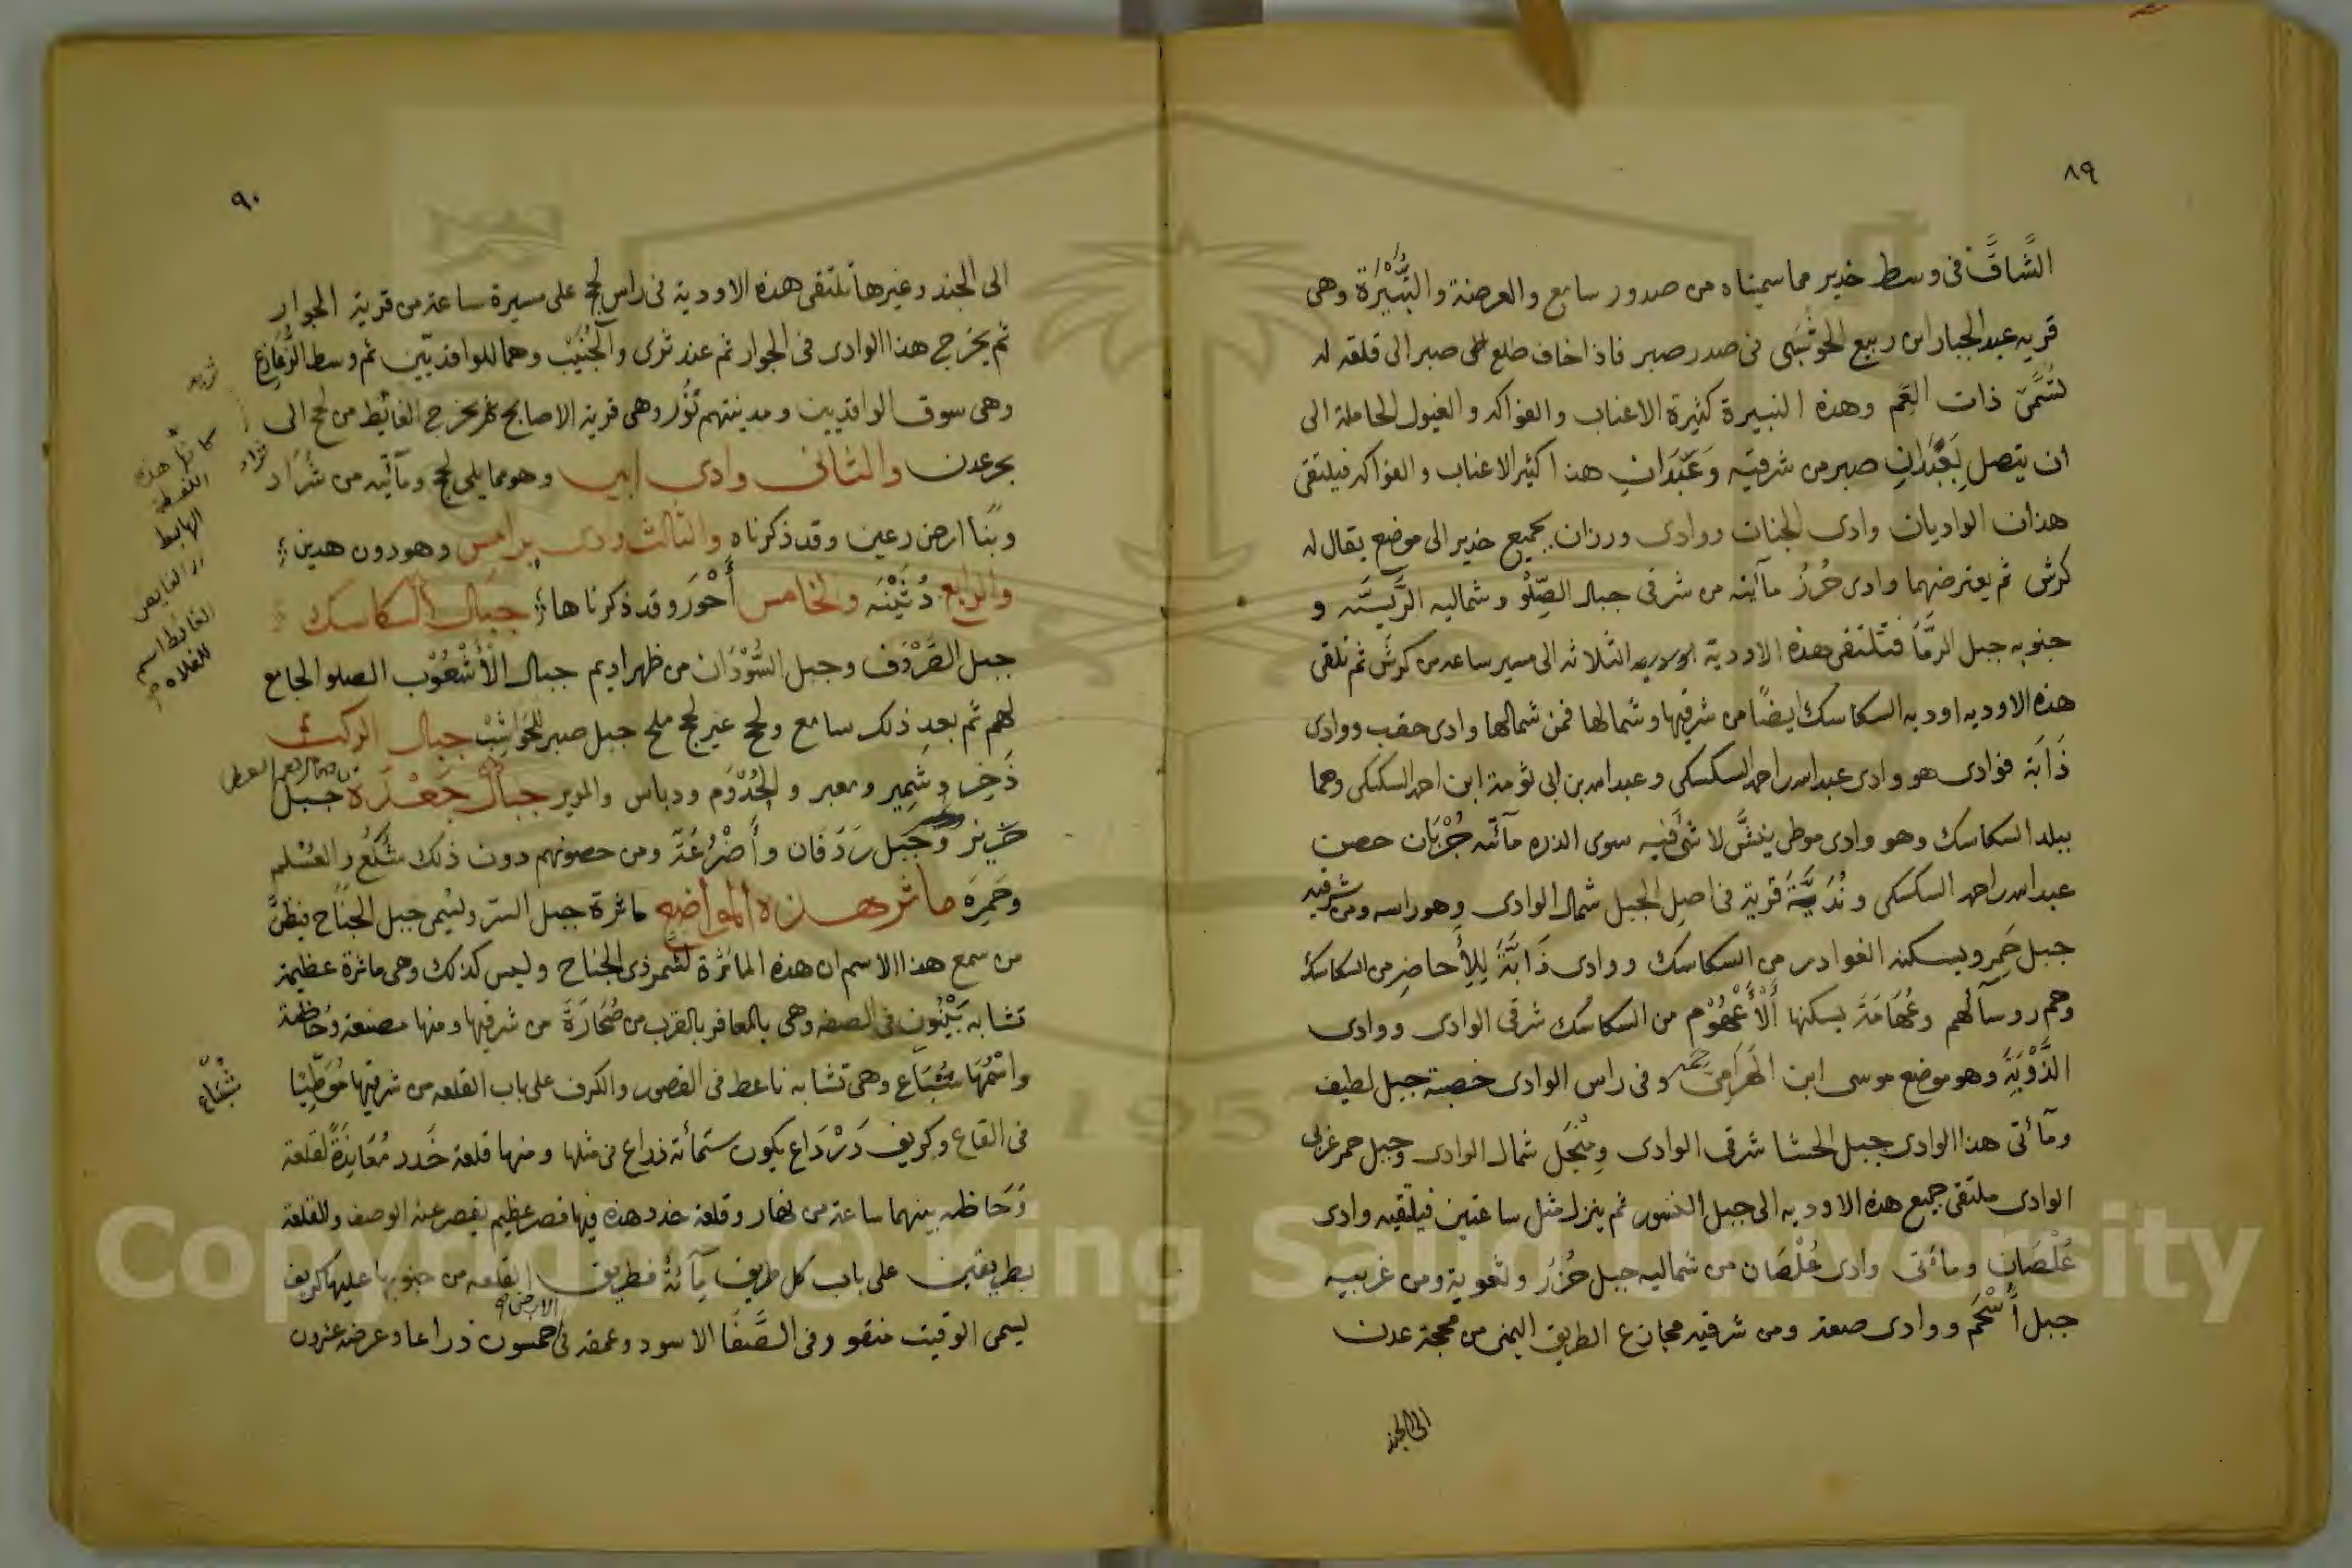 ٨٩
الشَّاقَّ في وسط خدير مما سميناه من صدور سامع والعرضة والنبيرة وهي
قريه عبد الجبار ابن ربيع الحوشبى فى صدر صبر فاذا خاف طلع صبر الى قلقه له
تُسَمَّى ذات العَمِ وهذه النبيرة كثيرة الاعناب والفواكه والغيول الحاملة الى
ان يتصل بعَبَدَانِ صبر من شرقيّه وَعَبَدَانِ هذا كثير الاعناب والفواكه فيلتقى
هذان الواديان وادى الجنات ووادى ورزان بجميع خدير الى موضع يقال له
كرش ثم يعترضهما وادى حُرُز مآتيه من شرقى جبال الصِّلْو وشماليه الرَّيسيّه و
جنوبه جبل الرمّا فتلتقى هذه الاودية الثلاثه الى مسير ساعه من كرش ثم تلقى
هذه الاوديه اوديه السكاسك ايضًا من شرقيها وشمالها فمن شمالها وادى حقب ووادى
ذَابَة فوادى هو وادى عبد الله بن احمد السكسكى وعبد الله بن ابى ثومة ابن احمد السكسكى وهما
ببلد السكاسك وهو وادى موطى لا شئ فيه سوى الذره مآتيه جُرْبَان حصن
عبد الله بن احمد السكسكى و قرية فى اصل الجبل شمال الوادى وهو راسه ومن شرقيه
جبل حَمِر ويسكنه الفوادر من السكاسك ووادى ذَابَّة لِلأَحاضِر من السكاسك
وهم روسآئهم وعُهَامَةَ يسكنها اَلْأُعْهُوْم من السكاسك شرقى الوادى ووادى
الدَّوْيَةَ وهو موضع موسى ابن وفى راس الوادى خصبة جبل لطيف
ومآتى هذا الوادى جبل الحشا شرقى الوادى ومنْجَل شمال الوادى وجبل حمر غربى
الوادى ملتقى جميع هذه الاوديه الى جبل النسور ثم ينزل مثل ساعتين فيلتقيه وادى
عُلْصَان ومآتى وادى عُلْصَان من شماليه جبل حُرُز ولعوية ومن غربيه
جبل أَسْحَم ووادى صعة ومن شرقيه مجازع الطريق اليمنى من محجة عدن
الى الجند
٩٠
الى الجند وغيرها تلتقى هذه الاودية فى راس لحج على مسيرة ساعة من قرية الجوار
ثم يخرج هذا الوادى فى الجوار ثم عند ثرى والجُنَيْب وهما للواقديّين ثم وسط الرُّعَارع
وهى سوق الواقديين ومدينتهم ثُوْر وهى قرية الاصابح ثم يخرج الغائط من لحج الى
بحر عدن والثانى وادى ابين وهو مما يلى لحج ومآتيه من شُرَاد
وبَنَا ارض رعين وقد ذكرناه والثالث وادى يرامس وهو دون هدين
والرابع دُثَيْنَه والخامس أَحْوَر وقد ذكرناها جبال السكاسك
جبل الصَّرْدَف وجبل السَّوْدَان من ظهر اديم جبال الأُشْعُوْب الصلو الجامع
لهم ثم بعد ذلك سامع ولحج غير لحج ملح جبل صبر للحواشِبْ جبال الركب
ذَخِر وشَمِير ومعبر والجُدُوْم ودباس والموير جبال جَعْدَة جبل
حرير وجبل رَدْفَان وأَضْرُعَة ومن حصونهم دون ذلك شُكَعُ والعَسْلم
وحَمِرَه مآثر هذه المواضع مآثرة جبل الستر ويسمى جبل الجناح فيظنُّ
من سمع هذا الاسم ان هذه الماثرة لشمر ذى الجناح وليس كذلك وهى ماثرة عظيمة
تشابه بَيْنُون فى الصفه وهى بالمعافر بالقرب من صُحَارَةَ من شرقيها ومنها مصنعة وُحَاظة
واسْمُهَا شُبَاع وهى تشابه ناعط فى القصور والكرف على باب القلعه من شرقيها مُوَطِّيًا
فى القاع وكريف دَرْدَاع يكون ستمائة ذراع فى مثلها ومنها قلعة خَدد مُعَانِدَةً لقلعة
وُحَاظه بينهما ساعة من نهار وقلعة خدد هذه فيها قصر عظيم يقصر عنه الوصف وللقلعة
بطريقين على باب كل طريق مآئةُ فطريق القلعه من جنوبها عليها كريف
يسمى الوقيت منقور فى الصَّفَا الاسود وعمقه فى الارض خمسون ذراعا وعرضه عشرون
شراد
كانّ هذه
النقطة
الهابط
الغائط اسم
للفلاه
شُبَاع